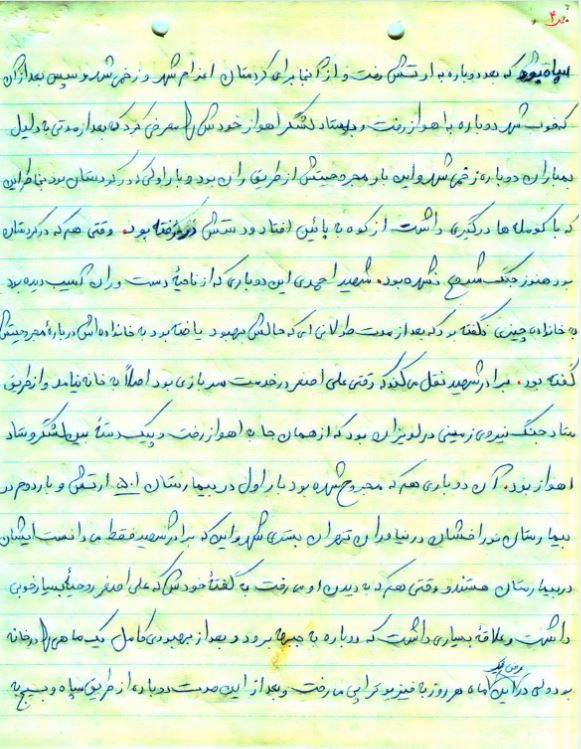 ص ۴
سپاه بود که بعد دوباره به ارتش رفت و از آنجا برای کردستان اعزام شد و زخمی شد و سپس بعد از آن
که خوب شد دوباره به اهواز رفت و به ستاد لشگر اهواز خودش را معرفی کرد که بعد از مدتی به دلیل
بمباران دوباره زخمی شد و این بار مجروحیتش از طریق ران بود و بار اولی که در کردستان بود بخاطر این
که با کومله ها درگیری داشت از کوه به پائین افتاد و دستش در رفته بود. وقتی هم که در کردستان
بود هنوز جنگ شروع نشده بود. شهید احمدی این دوباری که از ناحیهٔ دست و ران آسیب دیده بود
به خانواده چیزی نگفته بود که بعد از مدت طولانی ای که حالش بهبود یافته بود به خانواده اش دربارهٔ مجروحیتش
گفته بود. برادر شهید نقل می‌کند که وقتی علی اصغر در خدمت سربازی بود اصلاً به خانه نیامد و از طریق
ستاد جنگ نیروی زمینی در لویزان بود که از همان جا به اهواز رفت و پیک دستهٔ بین لشگر و ستاد
اهواز بود. آن دوباری هم که مجروح شده بود بار اول در بیمارستان ۵۰۱ ارتش و بار دوم در
بیمارستان نورافشان در نیاوران تهران بستری شد و این که برادر شهید فقط می دانست ایشان
در بیمارستان هستند و وقتی هم که به دیدن او می رفت به گفتهٔ خودش که علی اصغر روحیهٔ بسیار خوبی
داشت و علاقهٔ بسیاری داشت که دوباره به جبهه برود و بعد از بهبودی کامل یک ماهی را در خانه
بود ولی در این یک ماه هر روز به فیزیوتراپی می رفت و بعد از این مدت دوباره از طریق سپاه و بسیج به